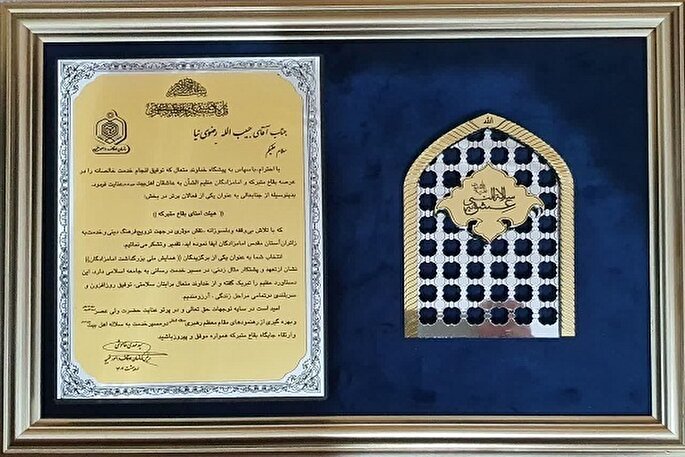 جناب آقای حبیب الله رضوی نیا
سلام علیکم
با احترام، با سپاس به پیشگاه خداوند متعال که توفیق انجام خدمت خالصانه را در
عرصه بقاع متبرکه و امامزادگان عظیم الشأن به عاشقان اهل‌بیت عنایت فرمود.
بدینوسیله از جنابعالی به عنوان یکی از فعالان برتر در بخش:
(( هیئت امنای بقاع متبرکه ))
که با تلاش بی‌وقفه و دلسوزانه، نقش موثری در جهت ترویج فرهنگ دینی و خدمت به
زائران آستان مقدس امامزادگان ایفا نموده اید، تقدیر و تشکر می نمائیم.
انتخاب شما به عنوان یکی از برگزیدگان (( همایش ملی بزرگداشت امامزادگان))
نشان از تعهد و پشتکار مثال زدنی، در مسیر خدمت رسانی به جامعه اسلامی دارد. این
دستاورد عظیم را تبریک گفته و از خداوند متعال برایتان سلامتی، توفیق روزافزون و
سربلندی در تمامی مراحل زندگی - آرزومندیم
امید است در سایه توجهات حق تعالی و در پرتو عنایت حضرت ولی عصر
و بهره گیری از رهنمودهای مقام معظم رهبری در مسیر خدمت به سلاله اهل بیت
و ارتقاء جایگاه بقاع متبرکه همواره موفق و پیروز باشید.
الله